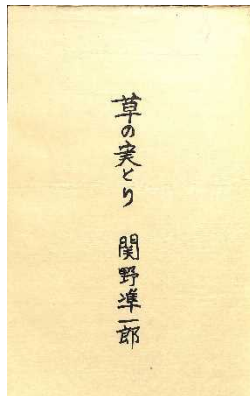 草の実とり 関野凖一郎